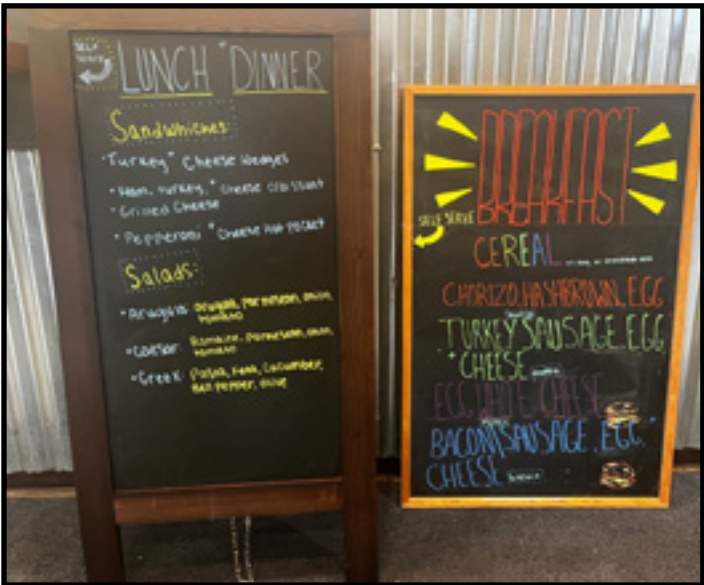 SELF
SERVE
LUNCH " DINNER
Sandwhiches:
• Turkey " Cheese Wedges
• Ham, turkey, " cheese croissant
• Grilled Cheese
• Pepperoni " Cheese Hot Pocket
Salads:
• Arugula: arugula, parmesan, onion,
tomato
• Caesar: Romaine, parmesan, onion,
tomato
• Greek: Pasta, Feta, Cucumber,
Bell pepper, olive
BREAKFAST
SELF SERVE
CEREAL
CHORIZO, HASHBROWN, EGG
TURKEY SAUSAGE, EGG
+ CHEESE
EGG WHITE CHEESE
BACON/SAUSAGE, EGG, "
CHEESE